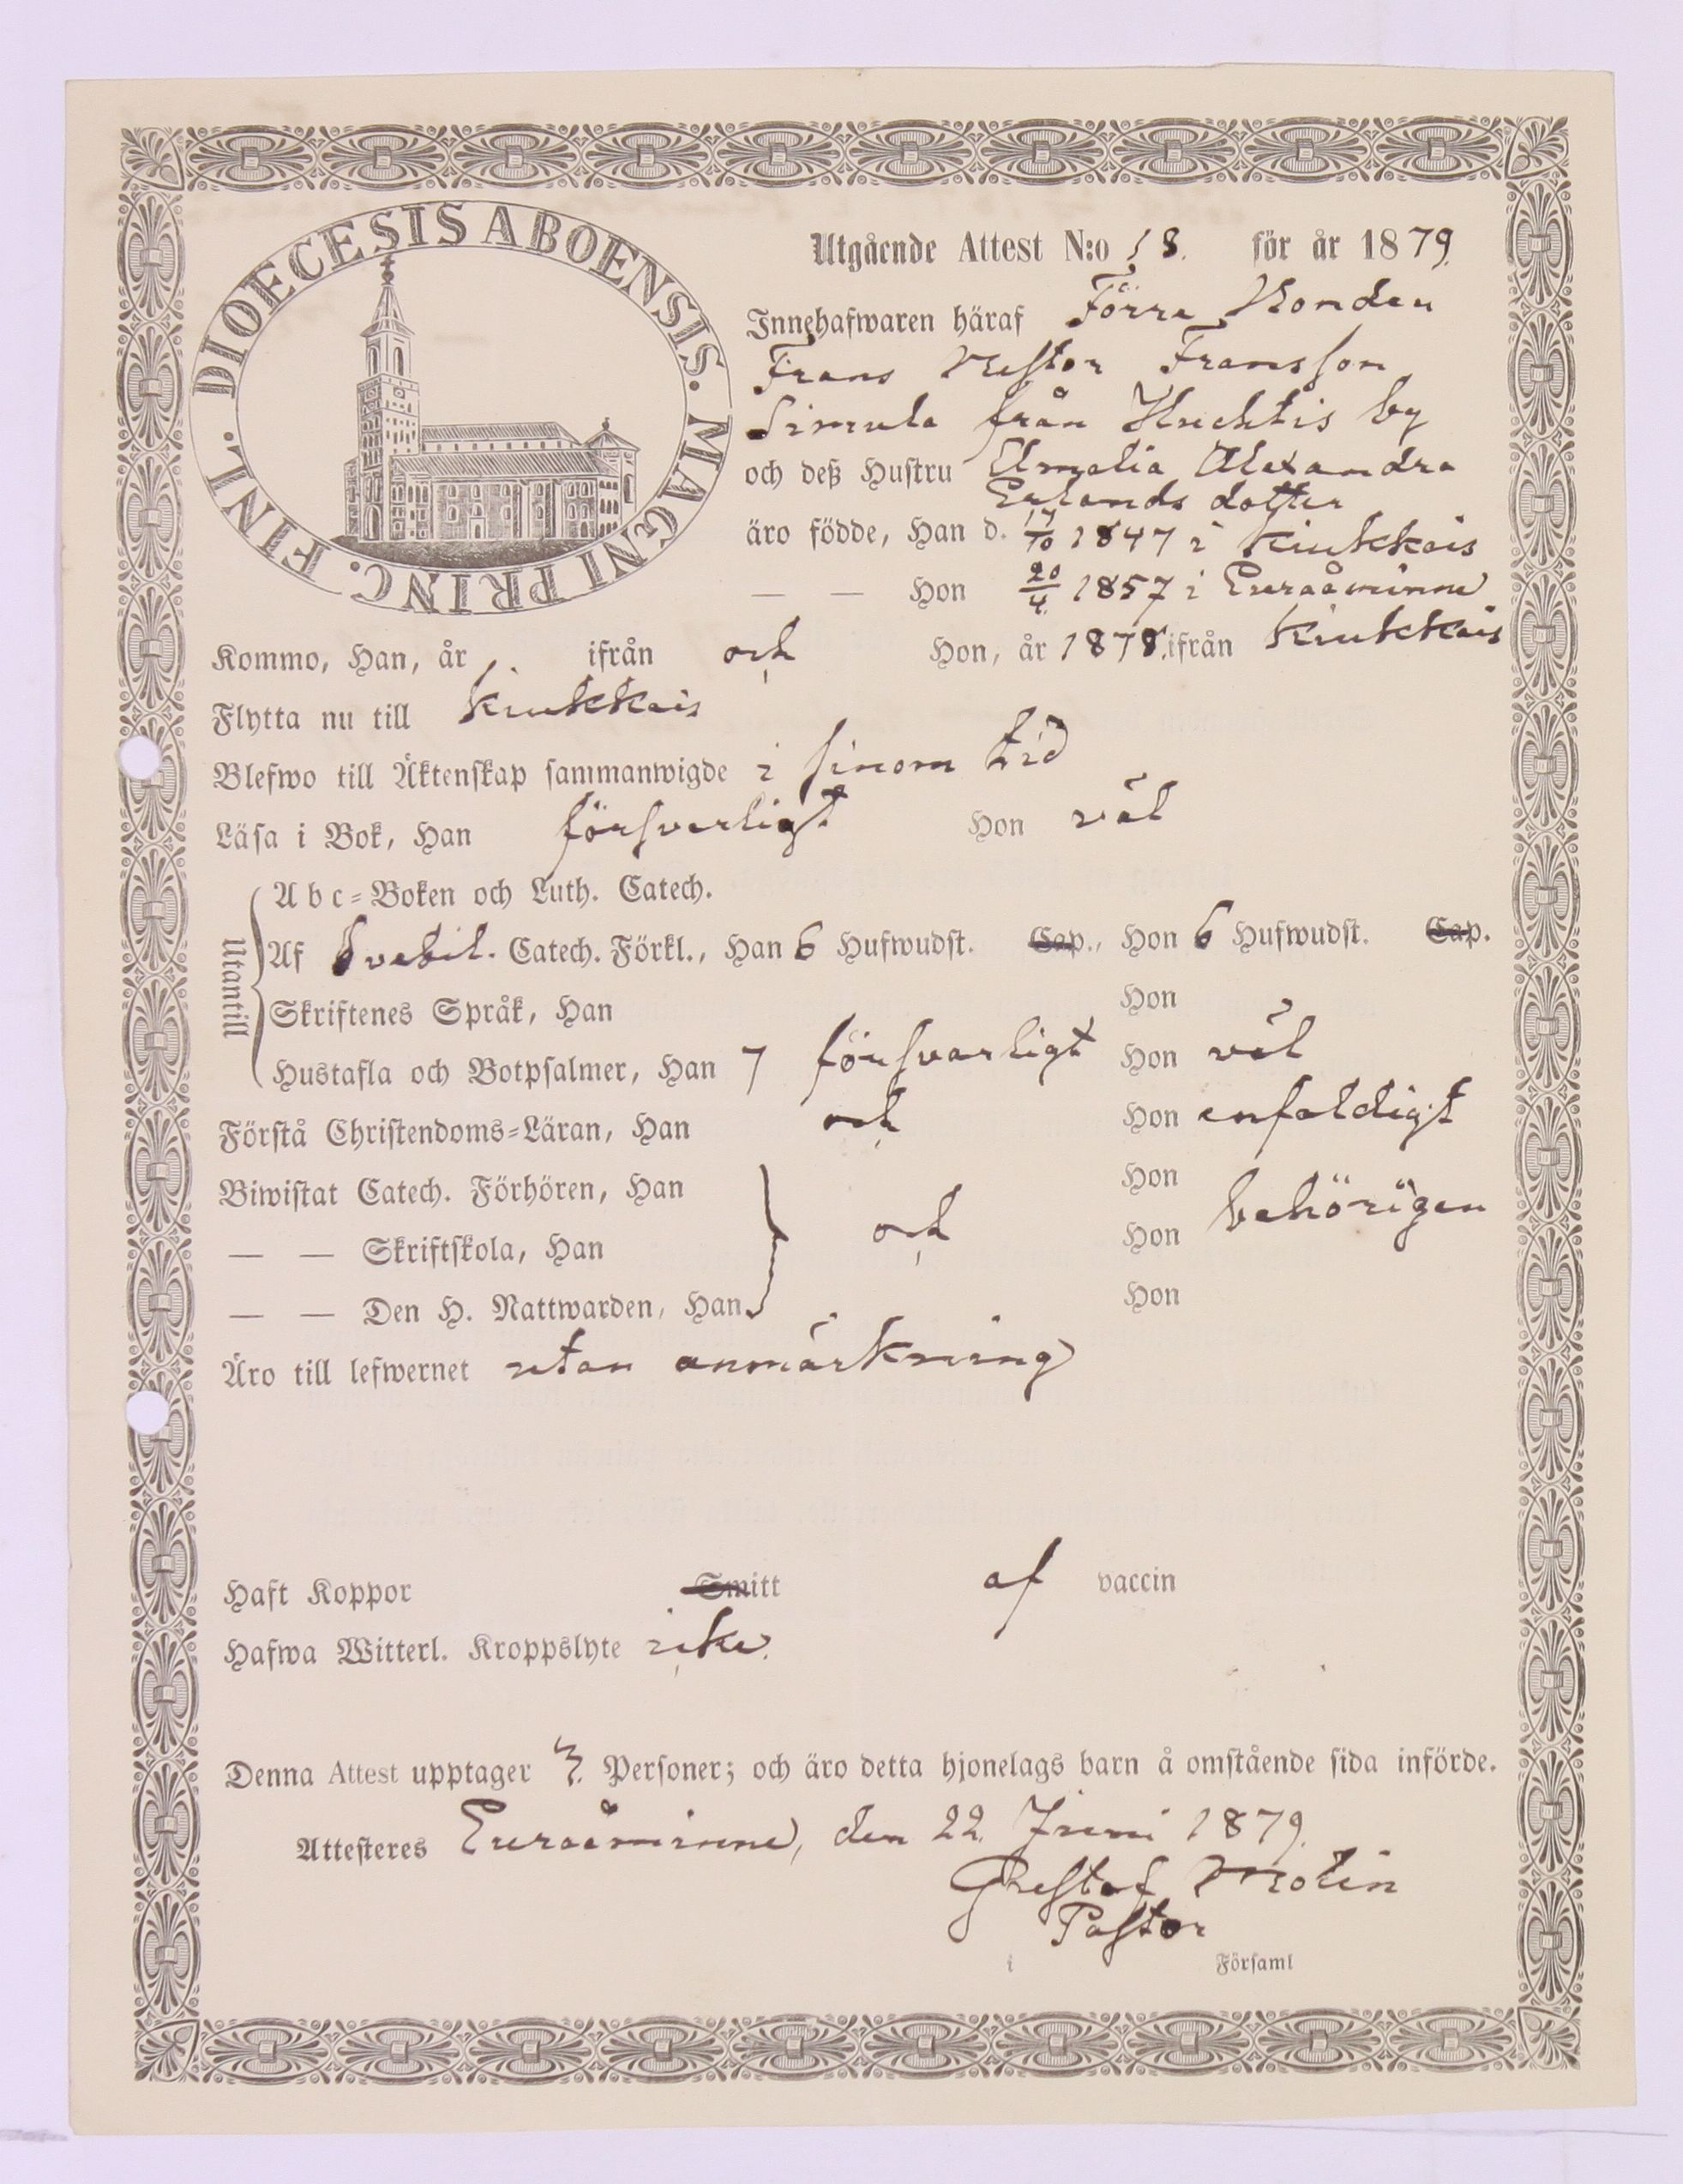 DIOECESIS ABOENSIS. MAGNI PRINC. FINL.
Utgående Attest N:o 18. för år 1879.
Innehafwaren häraf Förre Bonden
Frans Nestor Fransson
Simula från Huchtis by
och deß Hustru Amalia Alexandra
Erlands dotter
äro födde, Han d. 17/10 1847 i Kiukkais
— — Hon 20/4 1857 i Euraåminne
Kommo, Han, år ifrån och Hon, år 1878. ifrån Kiukkais
Flytta nu till Kiukkais
Blefwo till Äktenskap sammanwigde i sinom tid
Läsa i Bok, Han försvarligt Hon väl
Utantill
A b c-Boken och Luth. Catech.
Af Svebil. Catech. Förkl., Han 6 Hufwudst. Cap., Hon 6 Hufwudst. Cap.
Skriftenes Språk, Han Hon
Hustafla och Botpsalmer, Han 7 försvarligt Hon väl
Förstå Christendoms-Läran, Han och Hon enfaldigt
Biwistat Catech. Förhören, Han Hon
— — Skriftskola, Han och Hon behörigen
— — Den H. Nattwarden, Han Hon
Äro till lefwernet utan anmärkning
Haft Koppor Smitt af vaccin
Hafwa Witterl. Kroppslyte icke.
Denna Attest upptager 3. Personer; och äro detta hjonelags barn å omstående sida införde.
Attesteres Euraåminne, den 22. Juni 1879.
Gustaf Molin
Pastor
i Församl